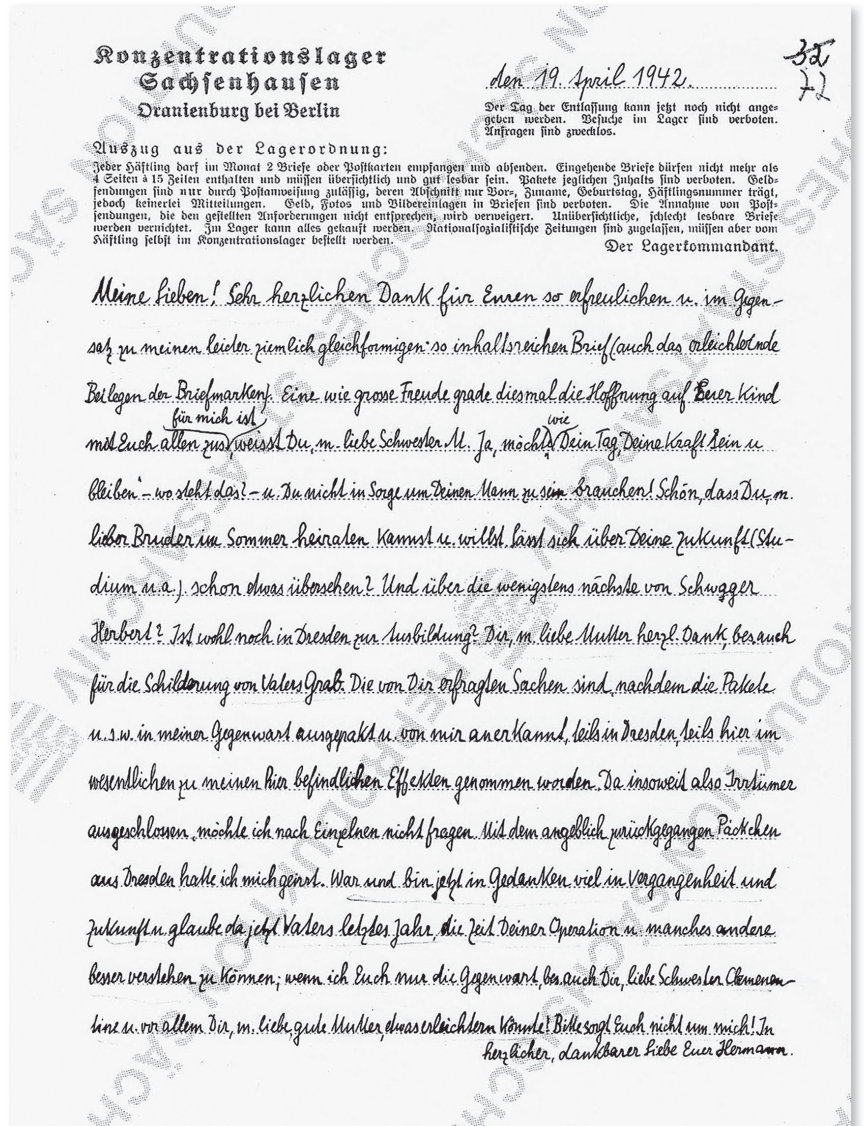 Konzentrationslager
Sachsenhausen
Oranienburg bei Berlin
den 19. April 1942.
32
72
Der Tag der Entlassung kann jetzt noch nicht ange-
geben werden. Besuche im Lager sind verboten.
Anfragen sind zwecklos.
Auszug aus der Lagerordnung:
Jeder Häftling darf im Monat 2 Briefe oder Postkarten empfangen und absenden. Eingehende Briefe dürfen nicht mehr als
4 Seiten à 15 Zeilen enthalten und müssen übersichtlich und gut lesbar sein. Pakete jeglichen Inhalts sind verboten. Geld-
sendungen sind nur durch Postanweisung zulässig, deren Abschnitt nur Vor-, Zuname, Geburtstag, Häftlingsnummer trägt,
jedoch keinerlei Mitteilungen. Geld, Fotos und Bildereinlagen in Briefen sind verboten. Die Annahme von Post-
sendungen, die den gestellten Anforderungen nicht entsprechen, wird verweigert. Unübersichtliche, schlecht lesbare Briefe
werden vernichtet. Im Lager kann alles gekauft werden. Nationalsozialistische Zeitungen sind zugelassen, müssen aber vom
Häftling selbst im Konzentrationslager bestellt werden.
Der Lagerkommandant.
Meine Lieben! Sehr herzlichen Dank für Euren so erfreulichen u. im Gegen-
satz zu meinen leider ziemlich gleichformigen so inhaltsreichen Brief (auch das erleichternde
Beilegen der Briefmarken). Eine wie grosse Freude grade diesmal die Hoffnung auf Euer Kind
für mich ist
wie
mit Euch allen zus., weisst Du, m. liebe Schwester M. Ja, möchte Dein Tag, Deine Kraft sein u
bleiben" – wo steht das? – u. Du nicht in Sorge um Deinen Mann zu sein brauchen! Schön, dass Du, m.
lieber Bruder im Sommer heiraten kannst u. willst. Lässt sich über Deine Zukunft (Stu-
dium u.a.) schon etwas übersehen? Und über die wenigstens nächste von Schwager
Herbert? Ist wohl noch in Dresden zur Ausbildung? Dir, m. liebe Mutter herzl. Dank, bes. auch
für die Schilderung von Vaters Grab. Die von Dir erfragten Sachen sind, nachdem die Pakete
u.s.w. in meiner Gegenwart ausgepakt u. von mir anerkannt, teils in Dresden, teils hier im
wesentlichen zu meinen hier befindlichen Effekten genommen worden. Da insoweit also Irrtümer
ausgeschlossen, möchte ich nach Einzelnen nicht fragen. Mit dem angeblich zurückgegangen Päckchen
aus Dresden hatte ich mich geirrt. War und bin jetzt in Gedanken viel in Vergangenheit und
Zukunft u. glaube da jetzt Vaters letztes Jahr, die Zeit Deiner Operation u. manches andere
besser verstehen zu können; wenn ich Euch nur die Gegenwart, bes. auch Dir, liebe Schwester Clemenen-
tine u. vor allem Dir, m. liebe, gute Mutter, etwas erleichtern könnte! Bitte sorgt Euch nicht um mich! In
herzlicher, dankbarer Liebe Euer Hermann.